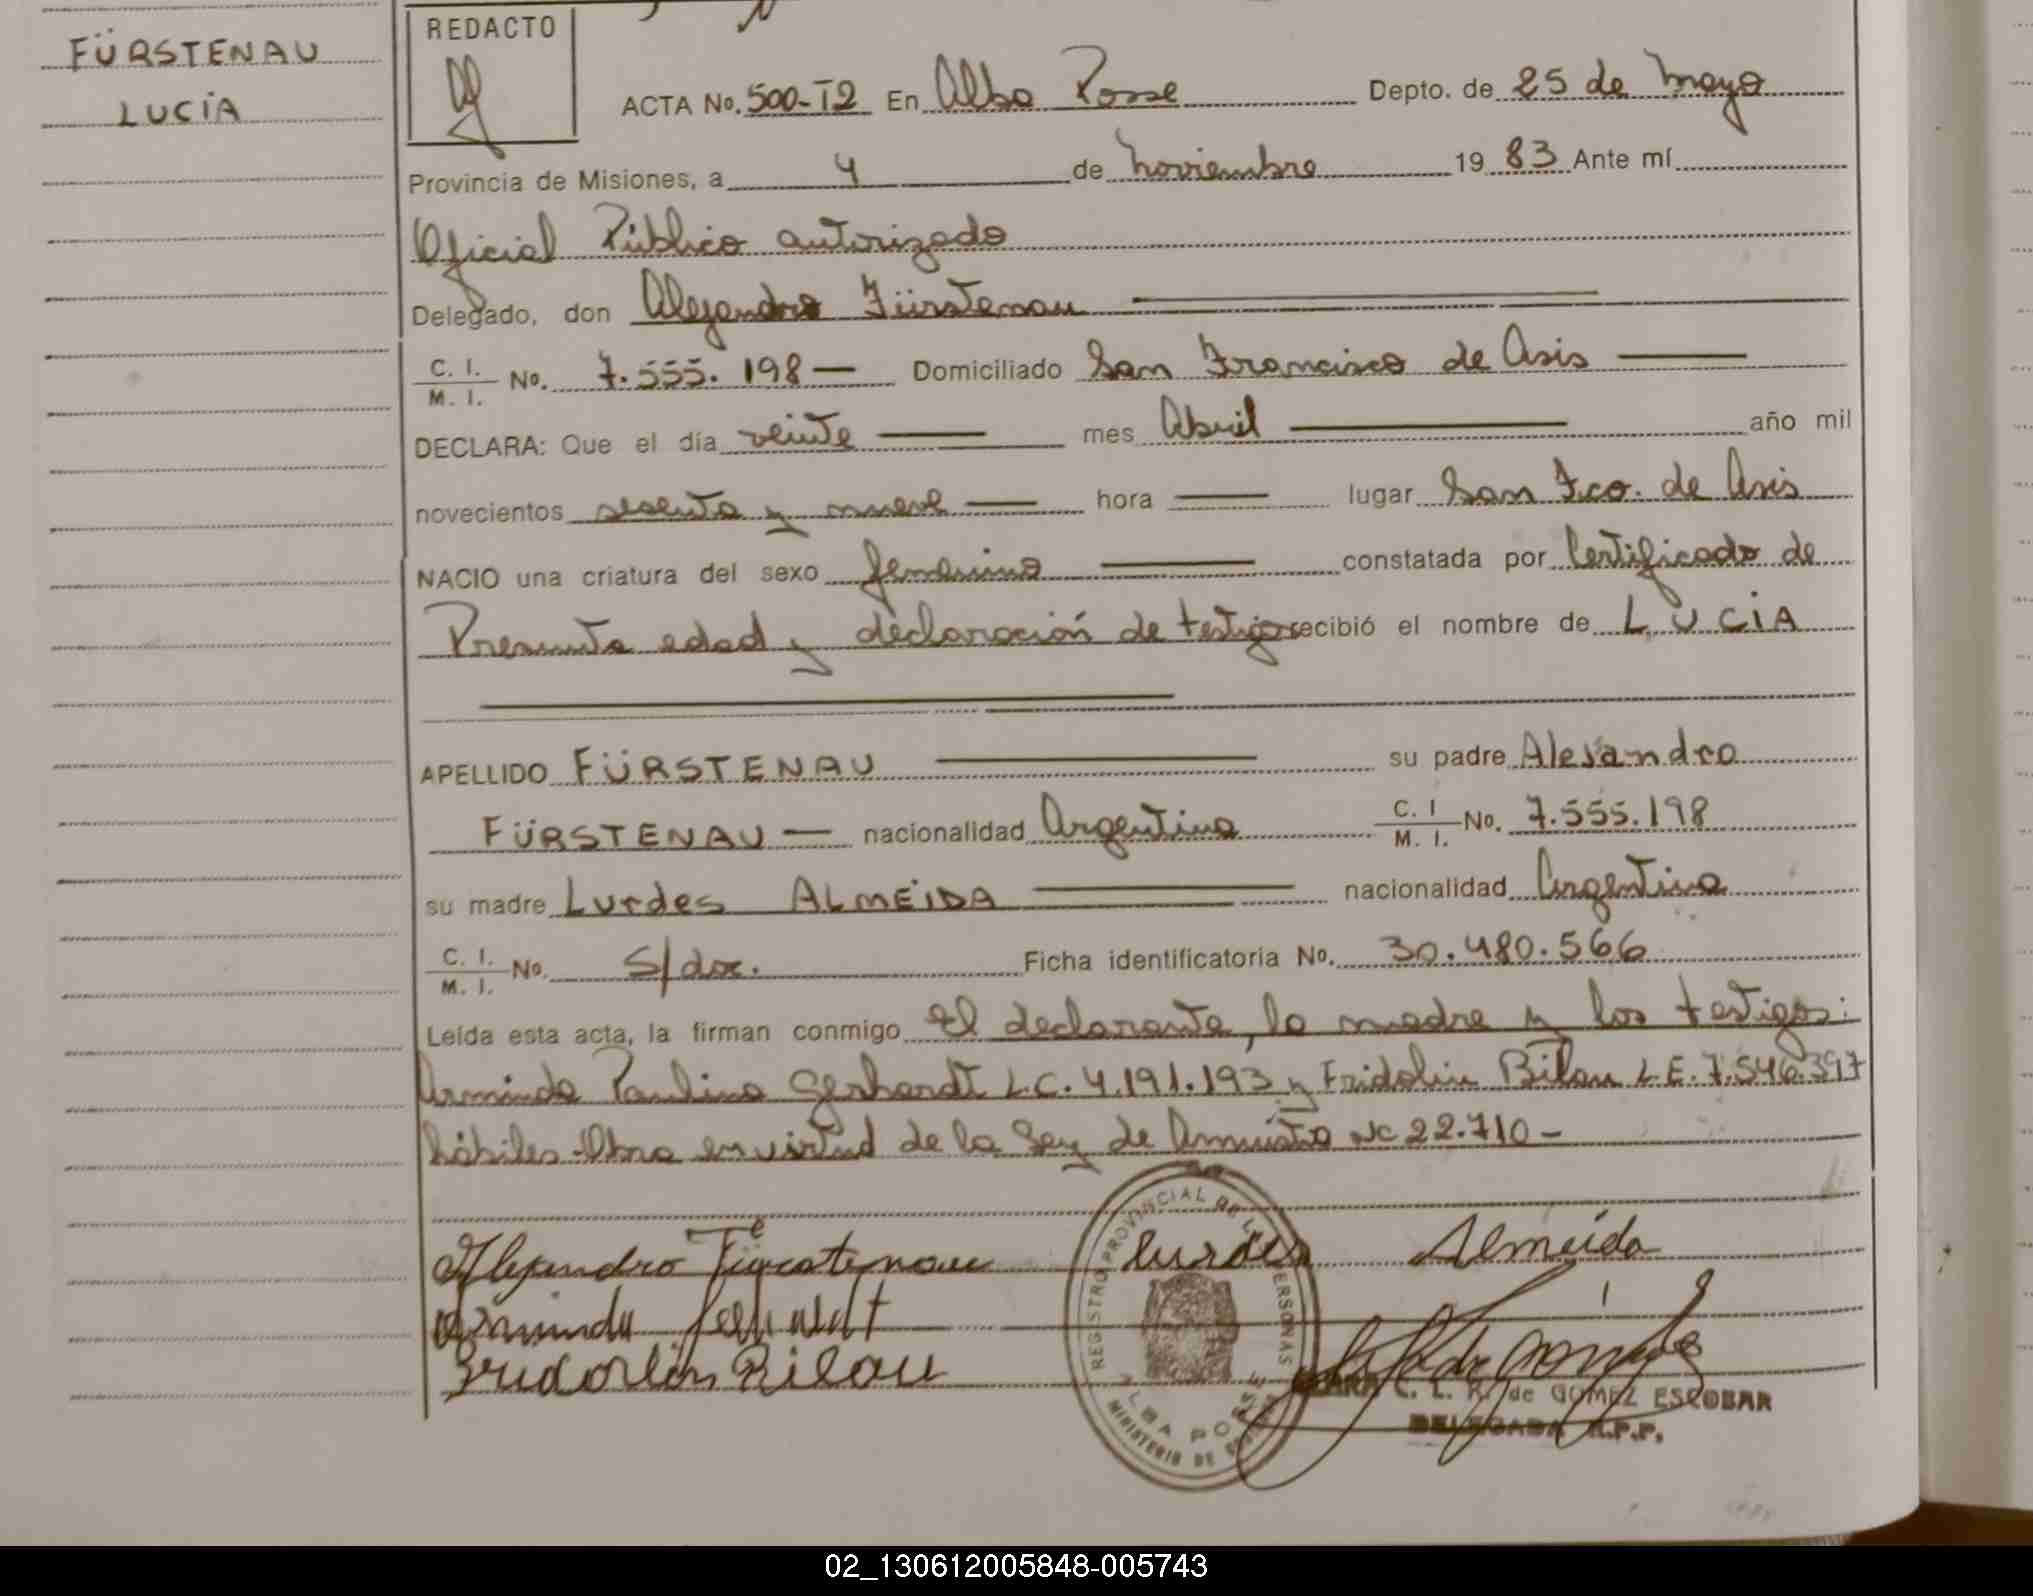 FÜRSTENAU
LUCÍA
REDACTO
ACTA No. 500-T2 En Alba Posse Depto. de 25 de mayo
Provincia de Misiones, a 4 de noviembre 19 83 Ante mí
Oficial Público autorizado
Delegado, don Alejandro Fürstenau
C. I. / M. I. No. 7.555.198 — Domiciliado San Francisco de Asis
DECLARA: Que el día veinte mes Abril año mil
novecientos sesenta y nueve hora lugar San Fco. de Asis
NACIO una criatura del sexo femenino constatada por Certificado de
Presunta edad y declaración de testigos recibió el nombre de LUCÍA
APELLIDO FÜRSTENAU su padre Alejandro
FÜRSTENAU — nacionalidad Argentina C. I / M. I. No. 7.555.198
su madre Lurdes ALMEIDA nacionalidad Argentina
C. I. / M. I. No. S/doc. Ficha identificatoria No. 30.480.566
Leída esta acta, la firman conmigo El declarante, la madre y los testigos:
Arminda Paulina Gerhardt L.C. 4.191.193 y Fridolin Bilau L.E. 7.546.397
hábiles. Obra en virtud de la Ley de Amnistía Nº 22.710 -
Alejandro Fürstenau Lurdes Almeida
Arminda Gerhardt
Fridolin Bilau
REGISTRO PROVINCIAL DE LAS PERSONAS
ALBA POSSE
MINISTERIO DE
C. L. R. de GOMEZ ESCOBAR
DELEGADA R.P.P.
02_130612005848-005743